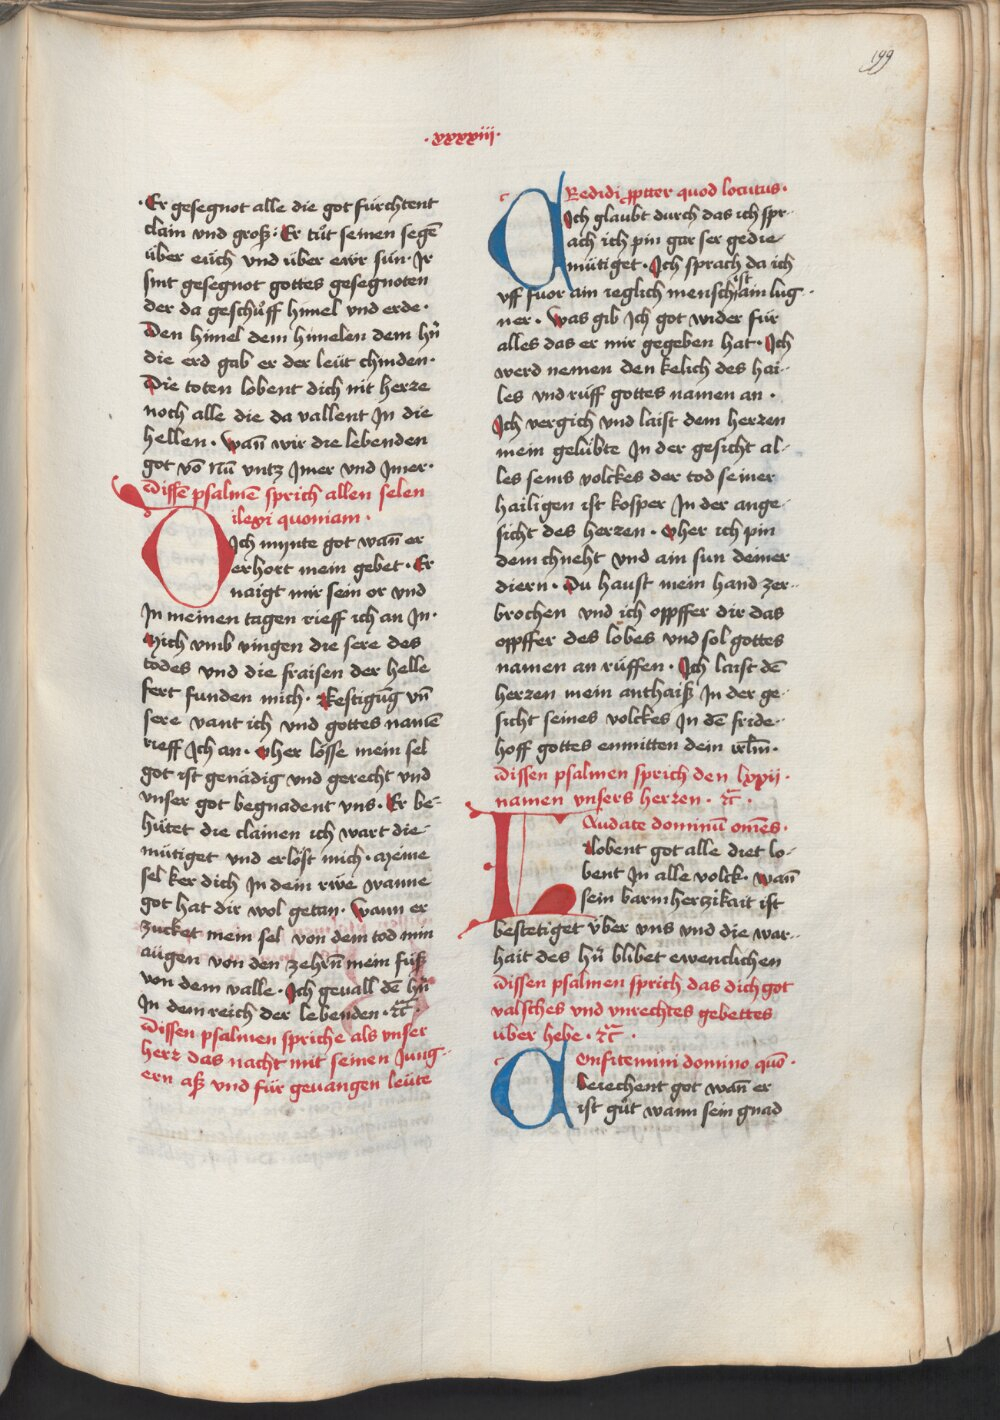 199
·xxxxiii·
·Er gesegnot alle die got fürchtent
clain vnd groß· Er tüt seinen segē
über eüch vnd über ewr sün· Jr
sint gesegnot gottes gesegnoten
der da geschůff himel vnd erde·
Den himel dem himelen dem hr̄n
die erd gab er der leüt chinden·
Die toten lobent dich nit herre
noch alle die da vallent Jn die
hellen· Wañ wir die lebenden
got võ nū vntz Jmer vnd Jmer·
Dissē psalmē sprich allen selen
Dilexi quoniam·
Jch mynte got wañ er
erhort mein gebet· Er
naigt mir sein or vnd
Jn meinen tagen rieff ich an Jn·
Mich vmb vingen die sere des
todes vnd die fraisen der helle
fert funden mich· Kestigūg vñ
sere vant ich vnd gottes namē
rieff Jch an· Oher lösse mein sel
got ist genädig vnd gerecht vnd
vnser got begnadent vns· Er be-
hütet die clainen ich wart die-
mütiget vnd erlöst mich· Meine
sel ker dich Jn dein rwe wanne
got hat dir wol getan· Wann er
zucket mein sel von dem tod min
augen von den zehrñ mein füß
von dem valle· Jch geuall dē hr̄n
Jn dem reich der lebenden· ꝛc̄·
Dissen psalmen spriche als vnser
herr das nacht mit seinen Jung-
ern aß vnd für geuangen leüte
Credidi ꝓpter quod locutus·
Jch glaubt durch das ich spr-
ach ich pin gar ser gedie-
mütiget· Jch sprach da ich
vff fuor ain ieglich mensch ist ain lug-
ner· Was gib Jch got wider für
alles das er mir gegeben hat· Jch
werd nemen den kelich des hai-
les vnd rüff gottes namen an·
Jch vergich vnd laist dem herren
mein gelübte Jn der gesicht al-
les seins volckes der tod seiner
hailigen ist kosper Jn der ange-
sicht des herren· Oher ich pin
dem chneht vnd ain sun deiner
diern· Du haust mein band zer-
brochen vnd ich oppffer dir das
oppffer des lobes vnd sol gottes
namen an rüffen· Jch laist dē
herren mein anthaiß Jn der ge-
sicht seines volckes Jn dē fride-
hoff gottes enmitten dein irl̄m·
Dissen psalmen sprich den lxxii·
namen vnsers herren· ꝛc̄·
Laudate dominū om̄es·
lobent got alle diet lo-
bent Jn alle volck· wañ
sein barmherzikait ist
bestetiget über vns vnd die war-
hait des hr̄n blibet ewenclichen
Dissen psalmen sprich das dich got
valsches vnd vnrechtes gebettes
über hebe· ꝛc̄·
Confitemini domino quō·
beiechent got wañ er
ist gůt wann sein gnad